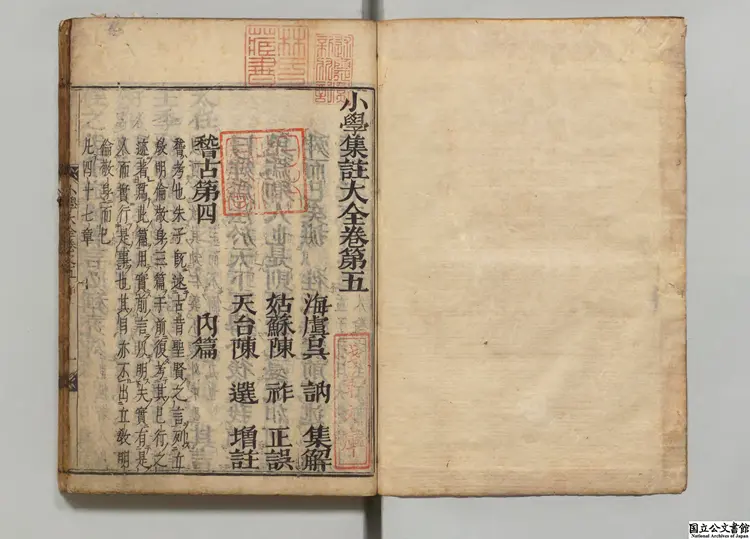 小學集註大全卷第五
海虞吳訥集解
姑蘇陳祚正誤
天台陳選增註
稽古第四　內篇
稽考也朱子旣述古昔聖賢之言列立
敎明倫敬身三篇于前復考其已行之
迹著爲此篇用實前言以明夫實有是
人而實行是事也其目亦不出立敎明
倫敬身而已
凡四十七章
国立公文書館
National Archives of Japan